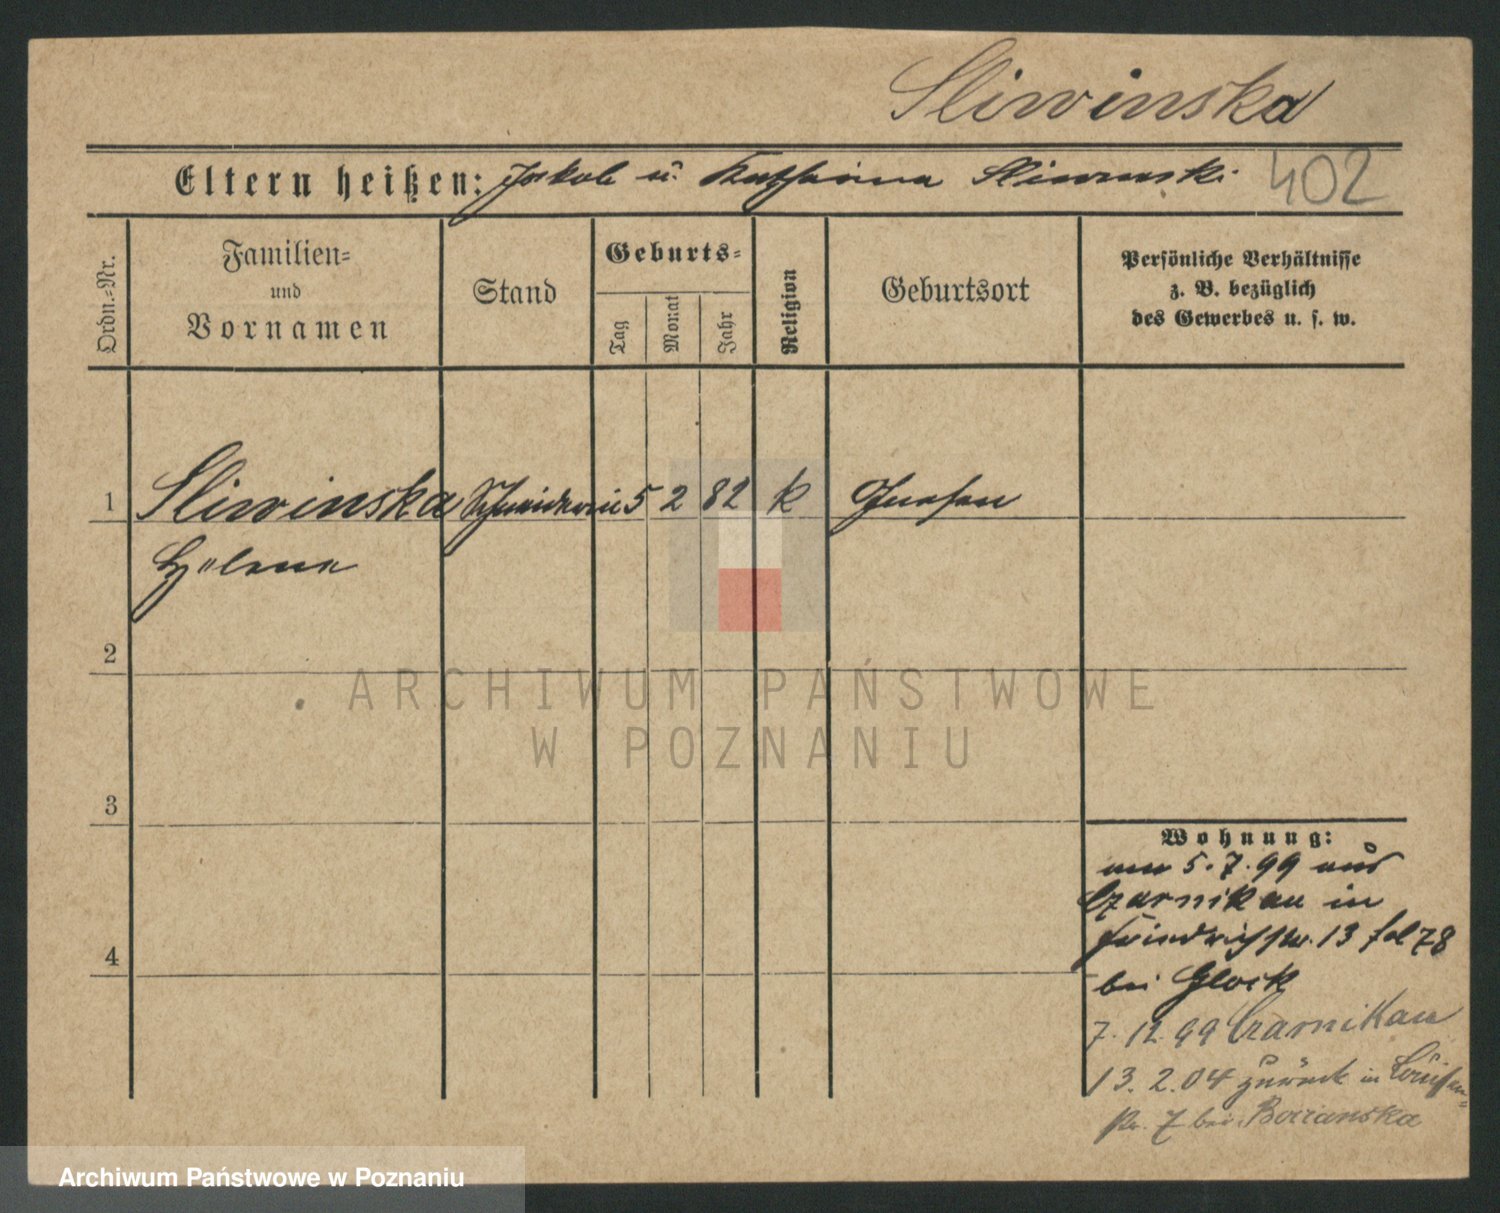 Sliwinska
Eltern heißen: Jakob u. Katharina Sliwinski 402
Ordn.-Nr.
Familien-
und
Vornamen
Stand
Geburts-
Tag
Monat
Jahr
Religion
Geburtsort
Persönliche Verhältnisse
z. B. bezüglich
des Gewerbes u. s. w.
1 Sliwinska Schneiderin 5 2 82 k Gnesen
Helena
2
ARCHIWUM PAŃSTWOWE
W POZNANIU
3
4
Wohnung:
am 5.7.99 aus
Czarnikau in
Friedrichstr. 13 fol 78
bei Glock
7.12.99 Czarnikau
13.2.04 zurück in Louisen-
str. 7 bei
Archiwum Państwowe w Poznaniu